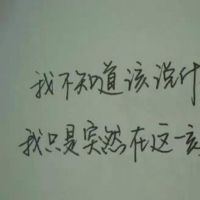 我不知道该说什
我只是突然在这一刻